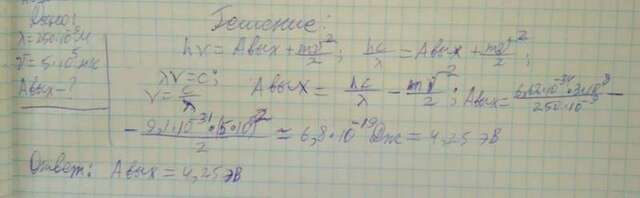 Дано:
λ=250·10⁻⁹м
v=5·10⁵м/с
Aвых-?
Решение:
hν = Aвых + mv²/2; hc/λ = Aвых + mv²/2;
λν=c;
ν=c/λ
Aвых = hc/λ - mv²/2; Aвых = 6,62·10⁻³⁴·3·10⁸/250·10⁻⁹ -
- 9,1·10⁻³¹·(5·10⁵)²/2 = 6,8·10⁻¹⁹Дж = 4,25 эВ
Ответ: Aвых = 4,25эВ